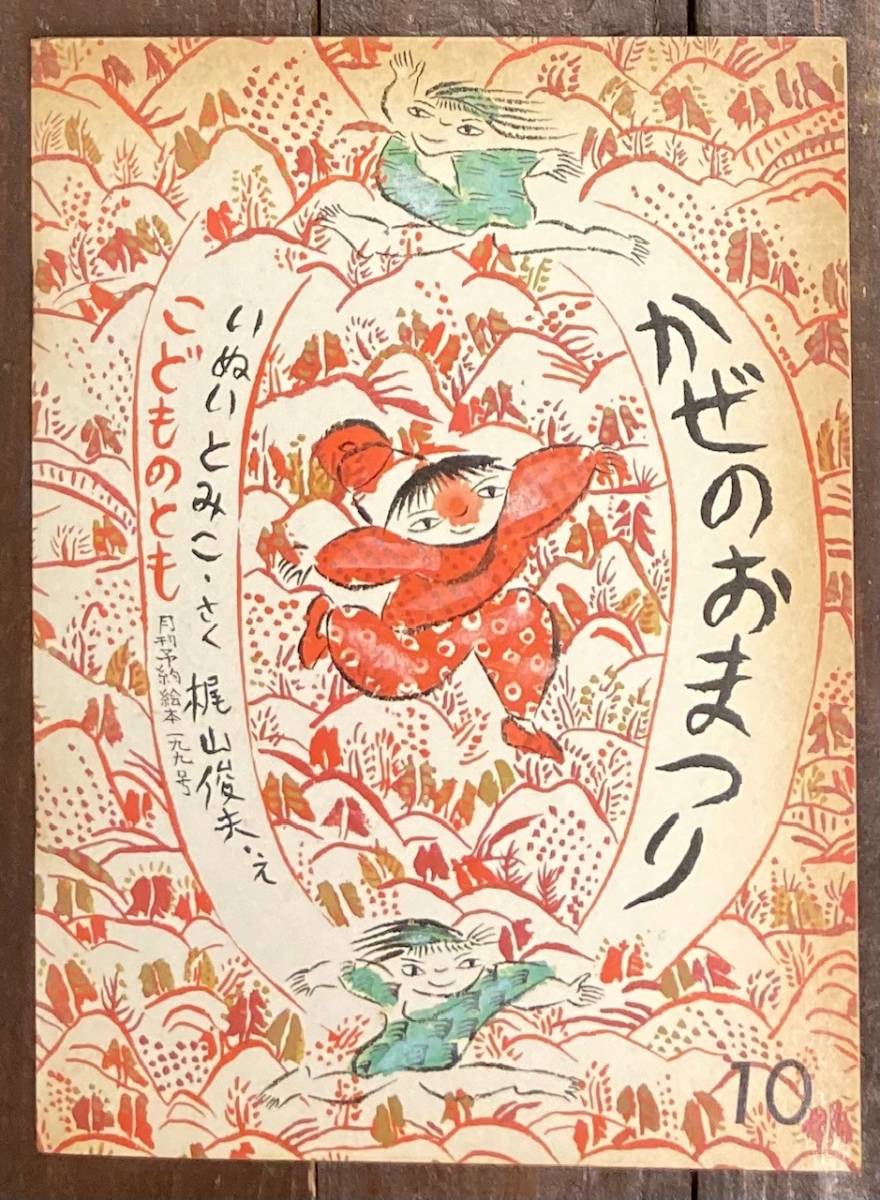 かぜのおまつり
いぬいとみこ・さく 梶山俊夫・え
こどものとも
月刊予約絵本一九九号
10